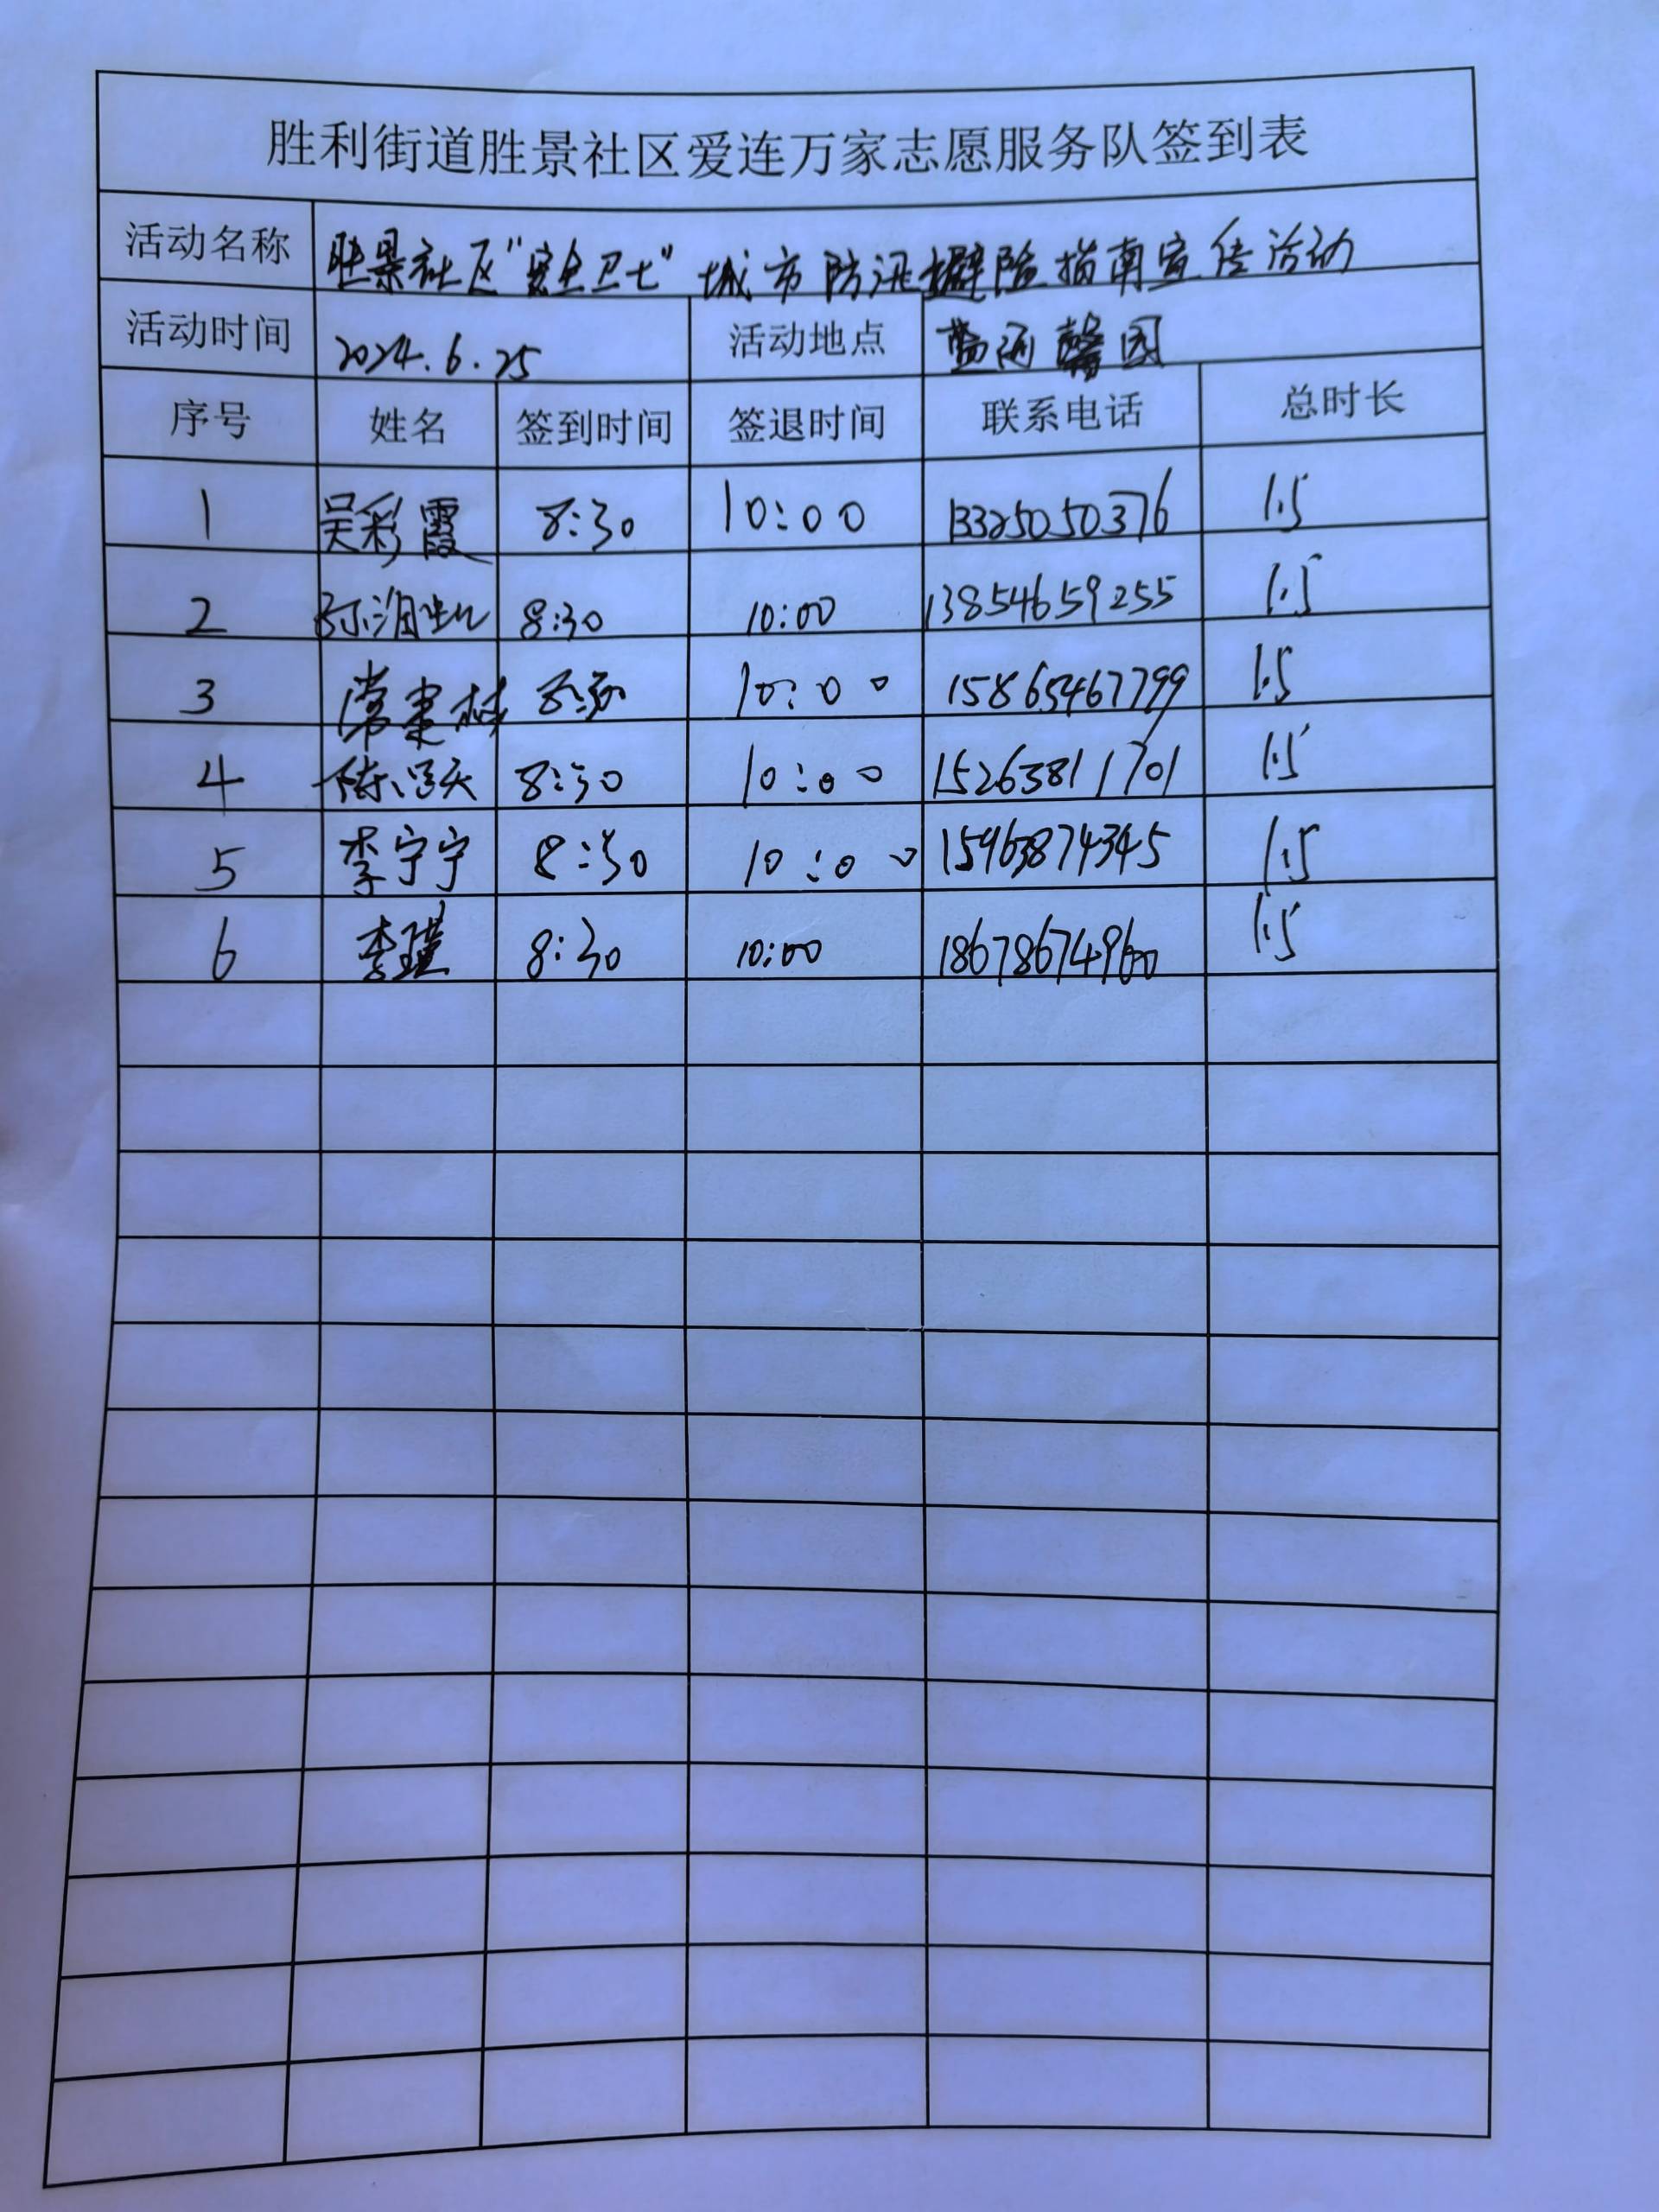 胜利街道胜景社区爱连万家志愿服务队签到表
活动名称 胜景社区“安全卫士”城市防汛避险指南宣传活动
活动时间 2024.6.25 活动地点 馨园
序号 姓名 签到时间 签退时间 联系电话 总时长
1 吴彩霞 8:30 10:00 13325050376 1.5
2 8:30 10:00 13854659255 1.5
3 常秉林 8:30 10:00 15865467799 1.5
4 8:30 10:00 15263811701 1.5
5 李宁宁 8:30 10:00 15963874345 1.5
6 李瑾 8:30 10:00 18678674960 1.5